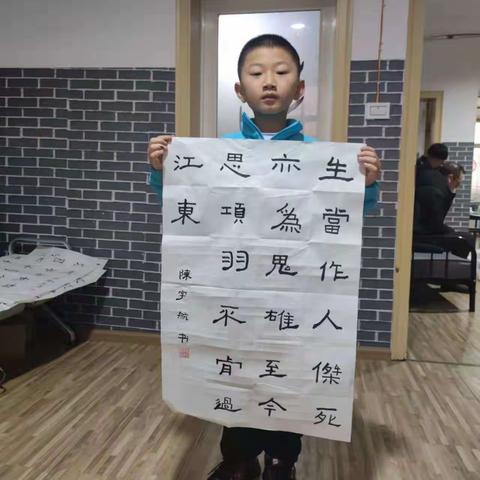 生當作人傑死
亦為鬼雄至今
思項羽不肯過
江東
陳宇书